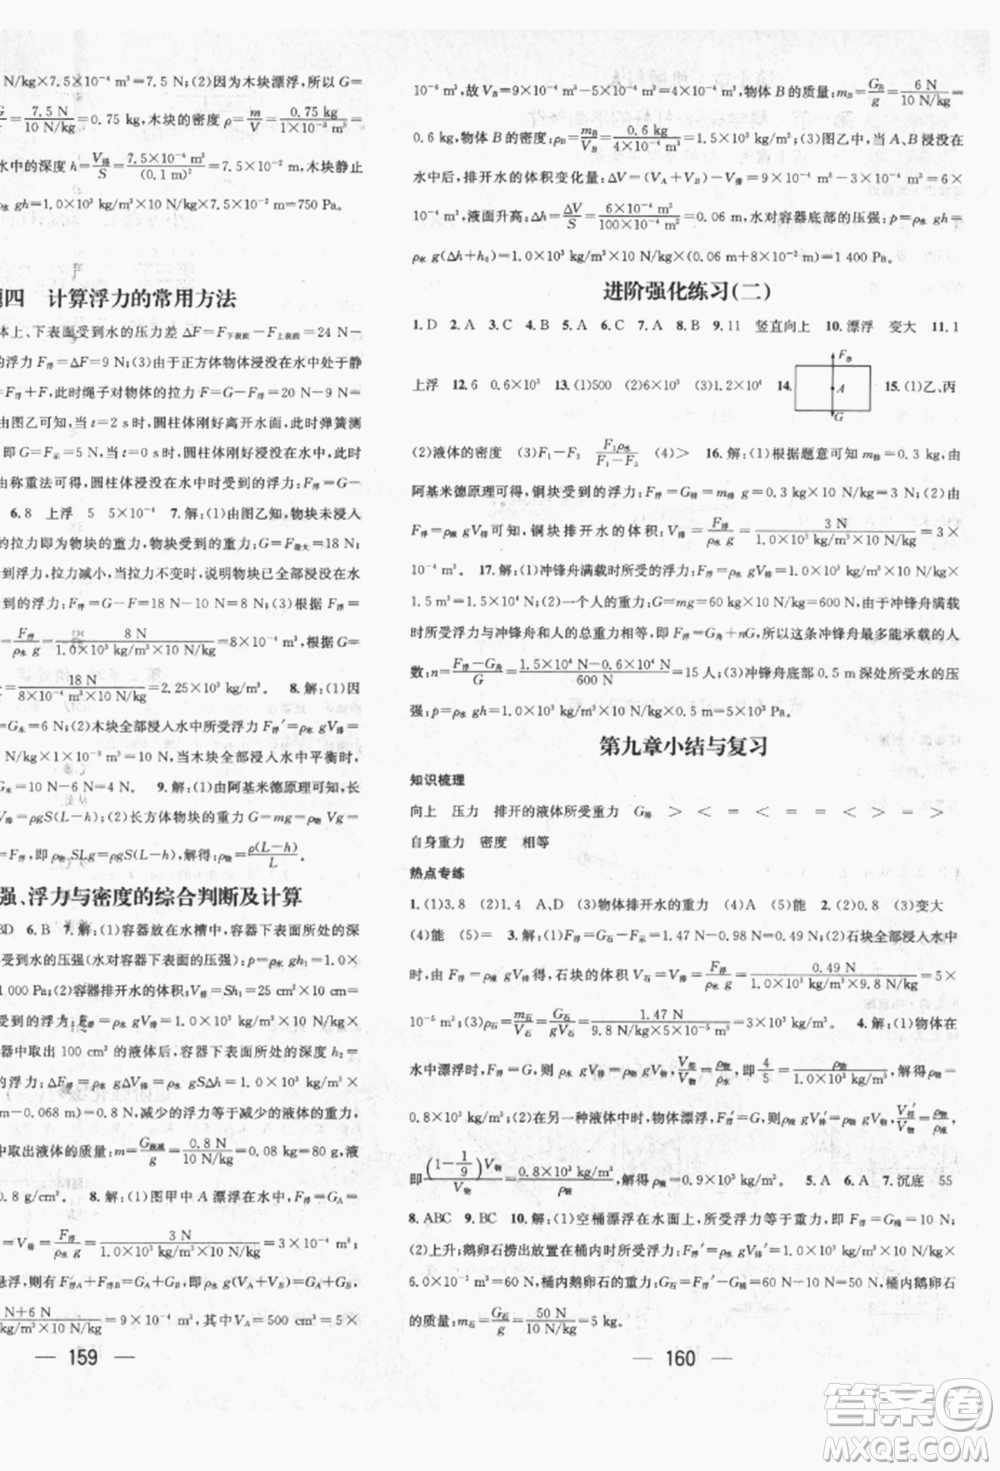 N/kg×7.5×10⁻⁴ m³=7.5 N;(2)因为木块漂浮,所以 G=
=7.5 N/10 N/kg=0.75 kg,木块的密度 ρ=m/V=0.75 kg/
水中的深度 h=V排/S=7.5×10⁻⁴ m³/(0.1 m)²=7.5×10⁻² m,木块静止
ρ水 gh=1.0×10³ kg/m³×10 N/kg×7.5×10⁻² m=750 Pa.
题四 计算浮力的常用方法
体上、下表面受到水的压力差 ΔF=F下表面-F上表面=24 N
的浮力 F浮=ΔF=9 N;(3)由于正方体物体浸没在水中时处于静
=F浮+F,此时绳子对物体的拉力 F=G-F浮=20 N-
由图乙可知,当 t=2 s时,圆柱体刚好离开水面,弹簧测
即 G=F示=5 N;当 t=0 s时,圆柱体刚好全部浸没在水中时
由称重法可知,圆柱体浸没在水中所受浮力 F浮=G-F示=
6.8 上浮 5 5×10⁻⁴ 7.解:(1)由图乙知,物块未浸入
的拉力即为物块的重力,物块受到的重力为 G=F最大=
受到浮力,拉力减小,当拉力不变时,说明物块全部浸入水
=F浮/ρ水 g=8 N/1.0×10³ kg/m³×10 N/kg=8×10⁻⁴ m³,根据 G=
18 N/8×10⁻⁴ m³×10 N/kg=2.25×10³ kg/m³ 8.解:(1)因
=6 N;(2)木块全部浸入水中时所受浮力 F浮′=ρ水 gV排=
N/kg×1×10⁻³ m³=10 N,当木块全部浸入水中平衡时,有
9.解:(1)由阿基米德原理可知,长
排=ρgS(L-h);(2)长方体物块的重力 G=mg=ρ物Vg=
=F浮,即 ρ物 SLg=ρgS(L-h),解得:ρ物=ρ(L-h)/L.
强、浮力与密度的综合判断及计算
BD 6.B 7.解:(1)容器放在水槽中,容器下表面所处的深
受到水的压强(水对容器下表面的压强):p=ρ水 gh₁=1.0×
1 000 Pa;(2)容器排开水的体积:V排=Sh₁=25 cm²×
受到的浮力:F浮=ρ水 gV排=1.0×10³ kg/m³×10 N/kg×
容器中取出 100 cm³ 的液体后,容器下表面所处的深度 h₂=
的浮力:ΔF浮=ρ水 gΔV排=ρ水 gS(h₁-h₂)=1.0×10³ kg/
m-0.068 m)=0.8 N,减少的浮力等于减少的液体的重力,
中取出液体的质量:m=G液减/g=0.8 N/10 N/kg=0.08 kg,液
8.解:(1)图甲中 A 漂浮在水中,则 F浮=GA=
V排=F浮/ρ水 g=3 N/1.0×10³ kg/m³×10 N/kg=3×10⁻⁴ m³
悬浮,则有 F浮A+F浮B=GA+GB,即 ρ水 g(VA+VB)=GA+GB
N+6 N/kg/m³×10 N/kg=9×10⁻⁴ m³,其中 VA=500 cm³=5×
159
10⁻⁴ m³,故 VB=9×10⁻⁴ m³-5×10⁻⁴ m³=4×10⁻⁴ m³.物体 B 的质量:mB=GB/g=6 N/10 N/kg=
0.6 kg,物体 B 的密度:ρB=mB/VB=0.6 kg/4×10⁻⁴ m³=1.5×10³ kg/m³;(3)图乙中,当 A、B浸没在
水中时,排开水的体积变化量:ΔV=(VA+VB)-V排=9×10⁻⁴ m³-3×10⁻⁴ m³=6×
10⁻⁴ m³,液面升高:Δh=ΔV/S=6×10⁻⁴ m³/100×10⁻⁴ m²=0.06 m,水对容器底部的压强:p=ρ水 gh=
ρ水 g(Δh+h₀)=1.0×10³ kg/m³×10 N/kg×(0.06 m+0.08 m)=1 400 Pa.
进阶强化练习(二)
1.D 2.A 3.C 4.B 5.A 6.C 7.A 8.B 9.11 竖直向上 10.漂浮 变大 11.1
上浮 12.6 0.6×10³ 13.(1)500 (2)8 (3)1.2×10³ 14. F浮 A G 15.(1)乙、丙
(2)液体的密度 (3)F₁-F₃ F₁ρ水/F₁-F₃ (4)> 16.解:(1)根据题意可知 m排=0.3 kg,由
阿基米德原理可知,铜块受到的浮力:F浮=G排=m排g=0.3 kg×10 N/kg=3 N;(2)由
F浮=ρ水 gV排可知,铜块排开水的体积:V排=F浮/ρ水 g=3 N/1.0×10³ kg/m³×10 N/kg=3×
10⁻⁴ m³. 17.解:(1)冲锋舟满载时所受的浮力:F浮=ρ水 gV排=1.0×10³ kg/m³×10 N/kg×
1.5 m³=1.5×10⁴ N;(2)一个人的重力:G=mg=60 kg×10 N/kg=600 N,由于冲锋舟满载
时所受浮力与冲锋舟和人的总重力相等,即 F浮=G舟+nG,所以这条冲锋舟最多能承载的人
数:n=F浮-G舟/G=1.5×10⁴ N-6 000 N/600 N=15人;(3)冲锋舟底部 0.5 m 深处所受水的压
强:p=ρ水 gh=1.0×10³ kg/m³×10 N/kg×0.5 m=5×10³ Pa.
第九章小结与复习
知识梳理
向上 压力 排开的液体所受重力 G排 > < = < = = < > = >
自身重力 密度 相等
热点专练
1.(1)3.8 (2)1.4 A、D (3)物体排开水的体积 (4)无关 (5)能 2.(1)2 (2)0.8 (3)变大
(4)能 (5)= 3.解:(1)F浮=G石-F示=1.47 N-0.98 N=0.49 N;(2)石块全部浸入水中
时,由公式 F浮=ρ水 gV排得,石块的体积 V石=V排=F浮/ρ水 g=0.49 N/1×10³ kg/m³×9.8 N/kg=5×
10⁻⁵ m³;(3)ρ石=m石/V石=G石/gV石=1.47 N/9.8 N/kg×5×10⁻⁵ m³=3×10³ kg/m³ 4.解:(1)物体在
水中漂浮时,F浮=G,即 ρ水 gV排=ρ物 gV物,则 ρ物=V排/V物ρ水=4/5×1.0×10³ kg/m³=
0.8×10³ kg/m³;(2)将它放入另一种液体中时,物体漂浮,F浮′=G,即 ρ液 gV排′=ρ物 gV物,
即(1-1/9)V物/V物=0.8×10³ kg/m³/ρ液,解得:ρ液=0.9×10³ kg/m³ 5.A 6.A 7.沉底 55
8.ABC 9.BC 10.解:(1)空桶漂浮在水面上,则 F浮=G桶=mg=1 kg×10 N/kg=10 N;
(2)上升;鹅卵石捞出放置在桶内时所受浮力:F浮′=ρ水 gV排′=1.0×10³ kg/m³×10 N/kg×
6.0×10⁻³ m³=60 N,桶内鹅卵石的重力:G石=F浮′-G桶=60 N-10 N=50 N,桶内鹅卵石
的质量:m石=G石/g=50 N/10 N/kg=5 kg.
160
答案圈
MXQE.COM